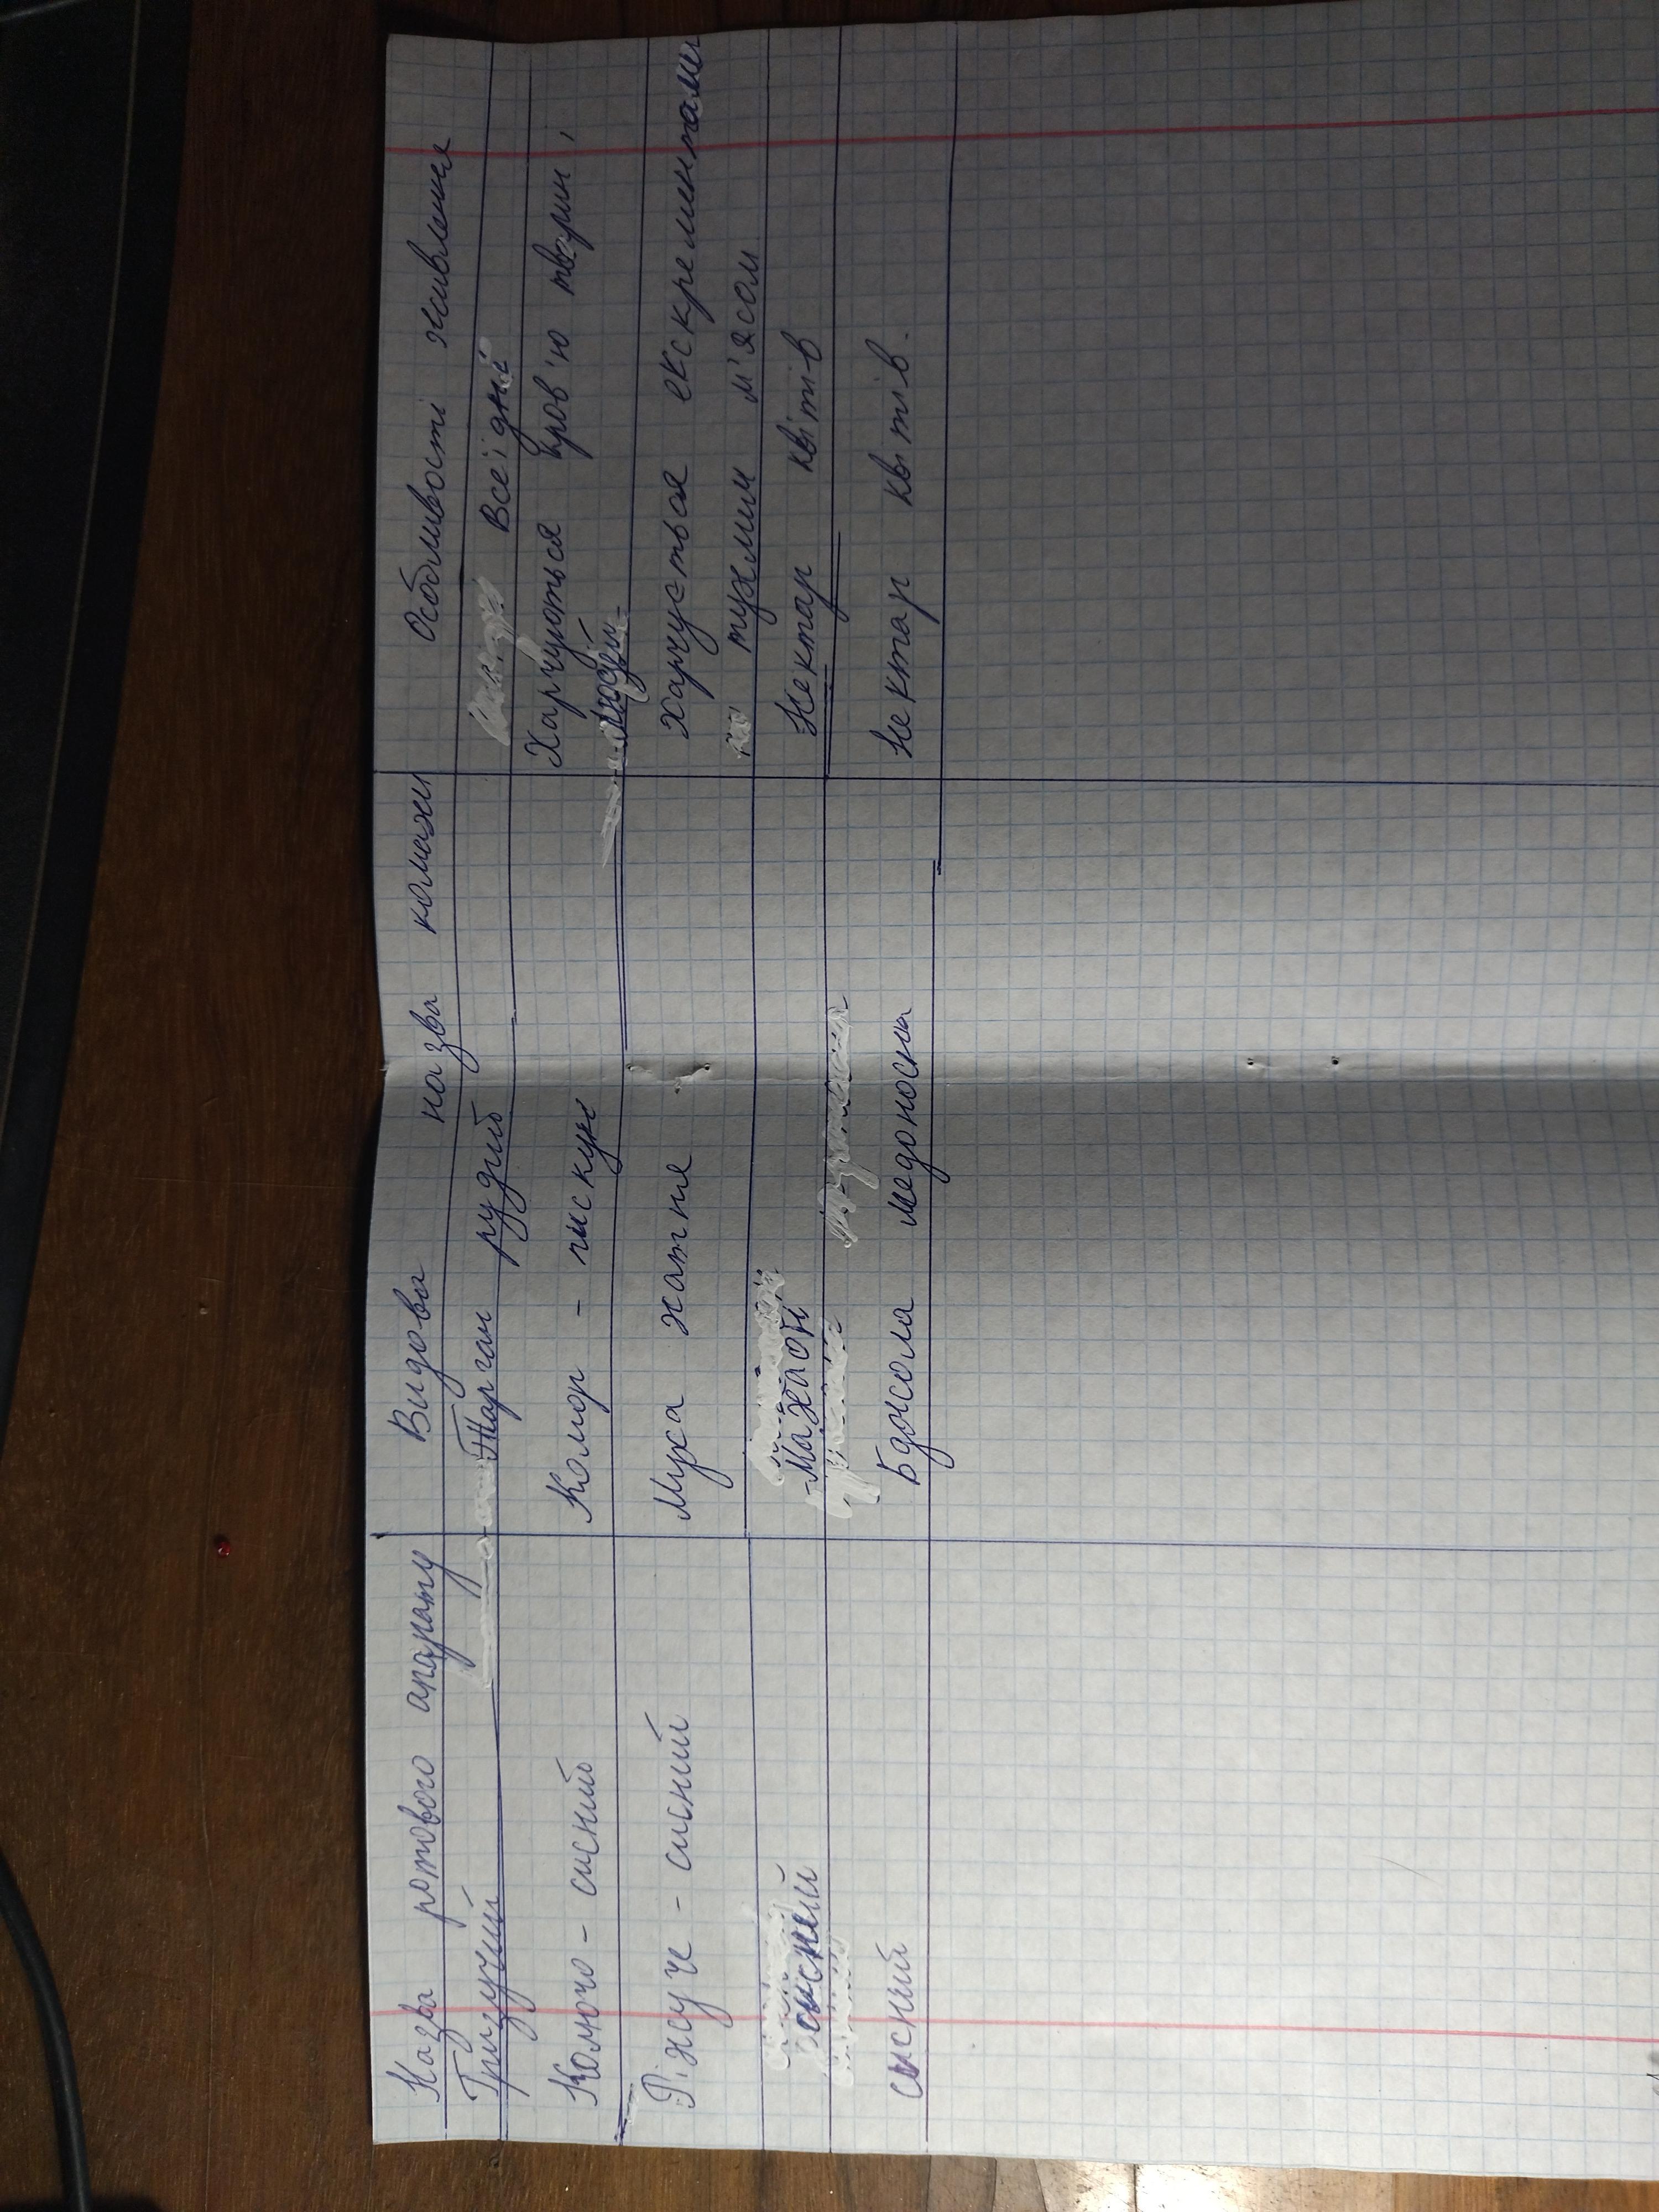 Назва ротового апарату Видова назва комахи Особливості живлення
Гризучий Тарган рудий Всеїдні
Колючо - сисний Комар - пискун Харчуються кров'ю тварин,
людей
Ріжуче - сисний Муха хатня Харчується екскрементами
тухлим м'ясом
сисний Махаон Нектар квітів
сисний Бджола медоносна Нектар квітів.